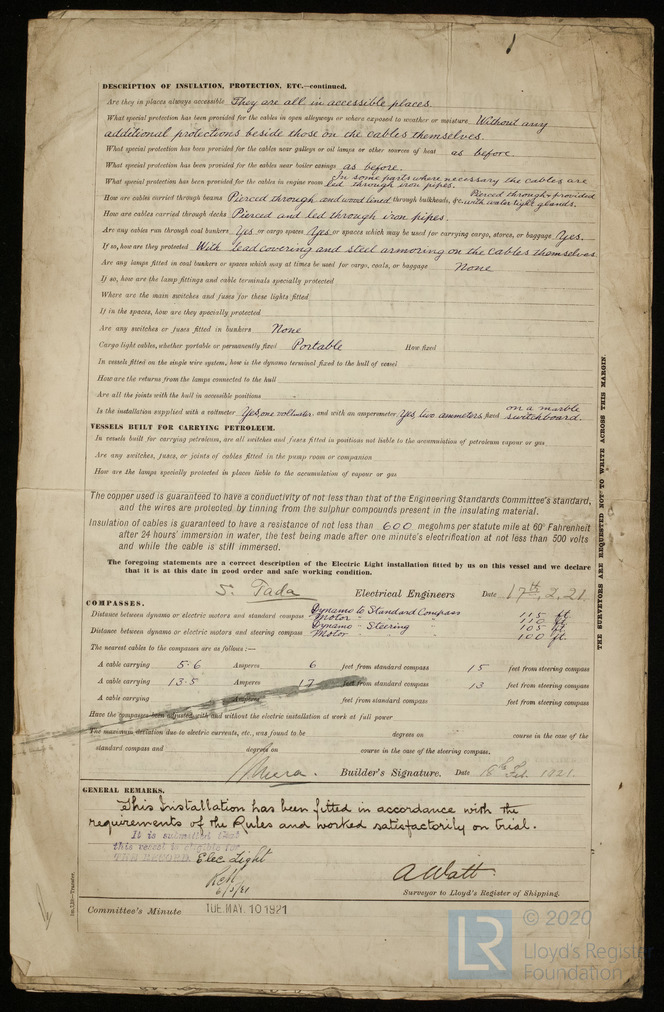 DESCRIPTION OF INSULATION, PROTECTION, ETC.—continued.
Are they in places always accessible They are all in accessible places.
What special protection has been provided for the cables in open alleyways or where exposed to weather or moisture Without any
additional protections beside those on the cables themselves.
What special protection has been provided for the cables near galleys or oil lamps or other sources of heat as before.
What special protection has been provided for the cables near boiler casings as before.
What special protection has been provided for the cables in engine room In some parts where necessary the cables are led through iron pipes.
How are cables carried through beams Pierced through and wood lined through bulkheads, &c. Pierced through & provided with water tight glands.
How are cables carried through decks Pierced and led through iron pipes
Are any cables run through coal bunkers Yes or cargo spaces Yes or spaces which may be used for carrying cargo, stores, or baggage Yes.
If so, how are they protected With lead covering and steel armoring on the cables themselves
Are any lamps fitted in coal bunkers or spaces which may at times be used for cargo, coals, or baggage None
If so, how are the lamp fittings and cable terminals specially protected
Where are the main switches and fuses for these lights fitted
If in the spaces, how are they specially protected
Are any switches or fuses fitted in bunkers None
Cargo light cables, whether portable or permanently fixed Portable How fixed
In vessels fitted on the single wire system, how is the dynamo terminal fixed to the hull of vessel
How are the returns from the lamps connected to the hull
Are all the joints with the hull in accessible positions
Is the installation supplied with a voltmeter Yes, one voltmeter and with an amperemeter Yes, two ammeters fixed on a marble switchboard.
VESSELS BUILT FOR CARRYING PETROLEUM.
In vessels built for carrying petroleum, are all switches and fuses fitted in positions not liable to the accumulation of petroleum vapour or gas
Are any switches, fuses, or joints of cables fitted in the pump room or companion
How are the lamps specially protected in places liable to the accumulation of vapour or gas
The copper used is guaranteed to have a conductivity of not less than that of the Engineering Standards Committee's standard,
and the wires are protected by tinning from the sulphur compounds present in the insulating material.
Insulation of cables is guaranteed to have a resistance of not less than 600 megohms per statute mile at 60° Fahrenheit
after 24 hours' immersion in water, the test being made after one minute's electrification at not less than 500 volts
and while the cable is still immersed.
The foregoing statements are a correct description of the Electric Light installation fitted by us on this vessel and we declare
that it is at this date in good order and safe working condition.
S. Tada Electrical Engineers Date 17th 2. 21.
COMPASSES.
Distance between dynamo or electric motors and standard compass Dynamo to Standard Compass 115 ft.
Motor " " 110 ft.
Distance between dynamo or electric motors and steering compass Dynamo " Steering " 105 ft.
Motor 100 ft.
The nearest cables to the compasses are as follows:—
A cable carrying 5.6 Amperes 6 feet from standard compass 15 feet from steering compass
A cable carrying 13.5 Amperes 17 feet from standard compass 13 feet from steering compass
A cable carrying Amperes feet from standard compass feet from steering compass
Have the compasses been adjusted with and without the electric installation at work at full power
The maximum deviation due to electric currents, etc., was found to be degrees on course in the case of the
standard compass and degrees on course in the case of the steering compass.
Builder's Signature. Date Feb. 1921.
GENERAL REMARKS.
This Installation has been fitted in accordance with the
requirements of the Rules and worked satisfactorily on trial.
It is submitted that
this vessel is eligible for
THE RECORD. Elec Light
A Watt.
Surveyor to Lloyd's Register of Shipping.
Committee's Minute TUE. MAY. 10 1921
THE SURVEYORS ARE REQUESTED NOT TO WRITE ACROSS THIS MARGIN.
LR © 2020
Lloyd's Register
Foundation